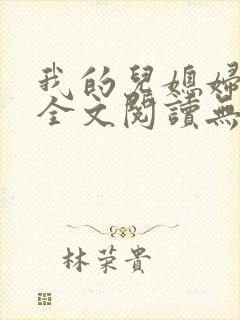 我的兒媳婦
全文閱讀無
林荣貴